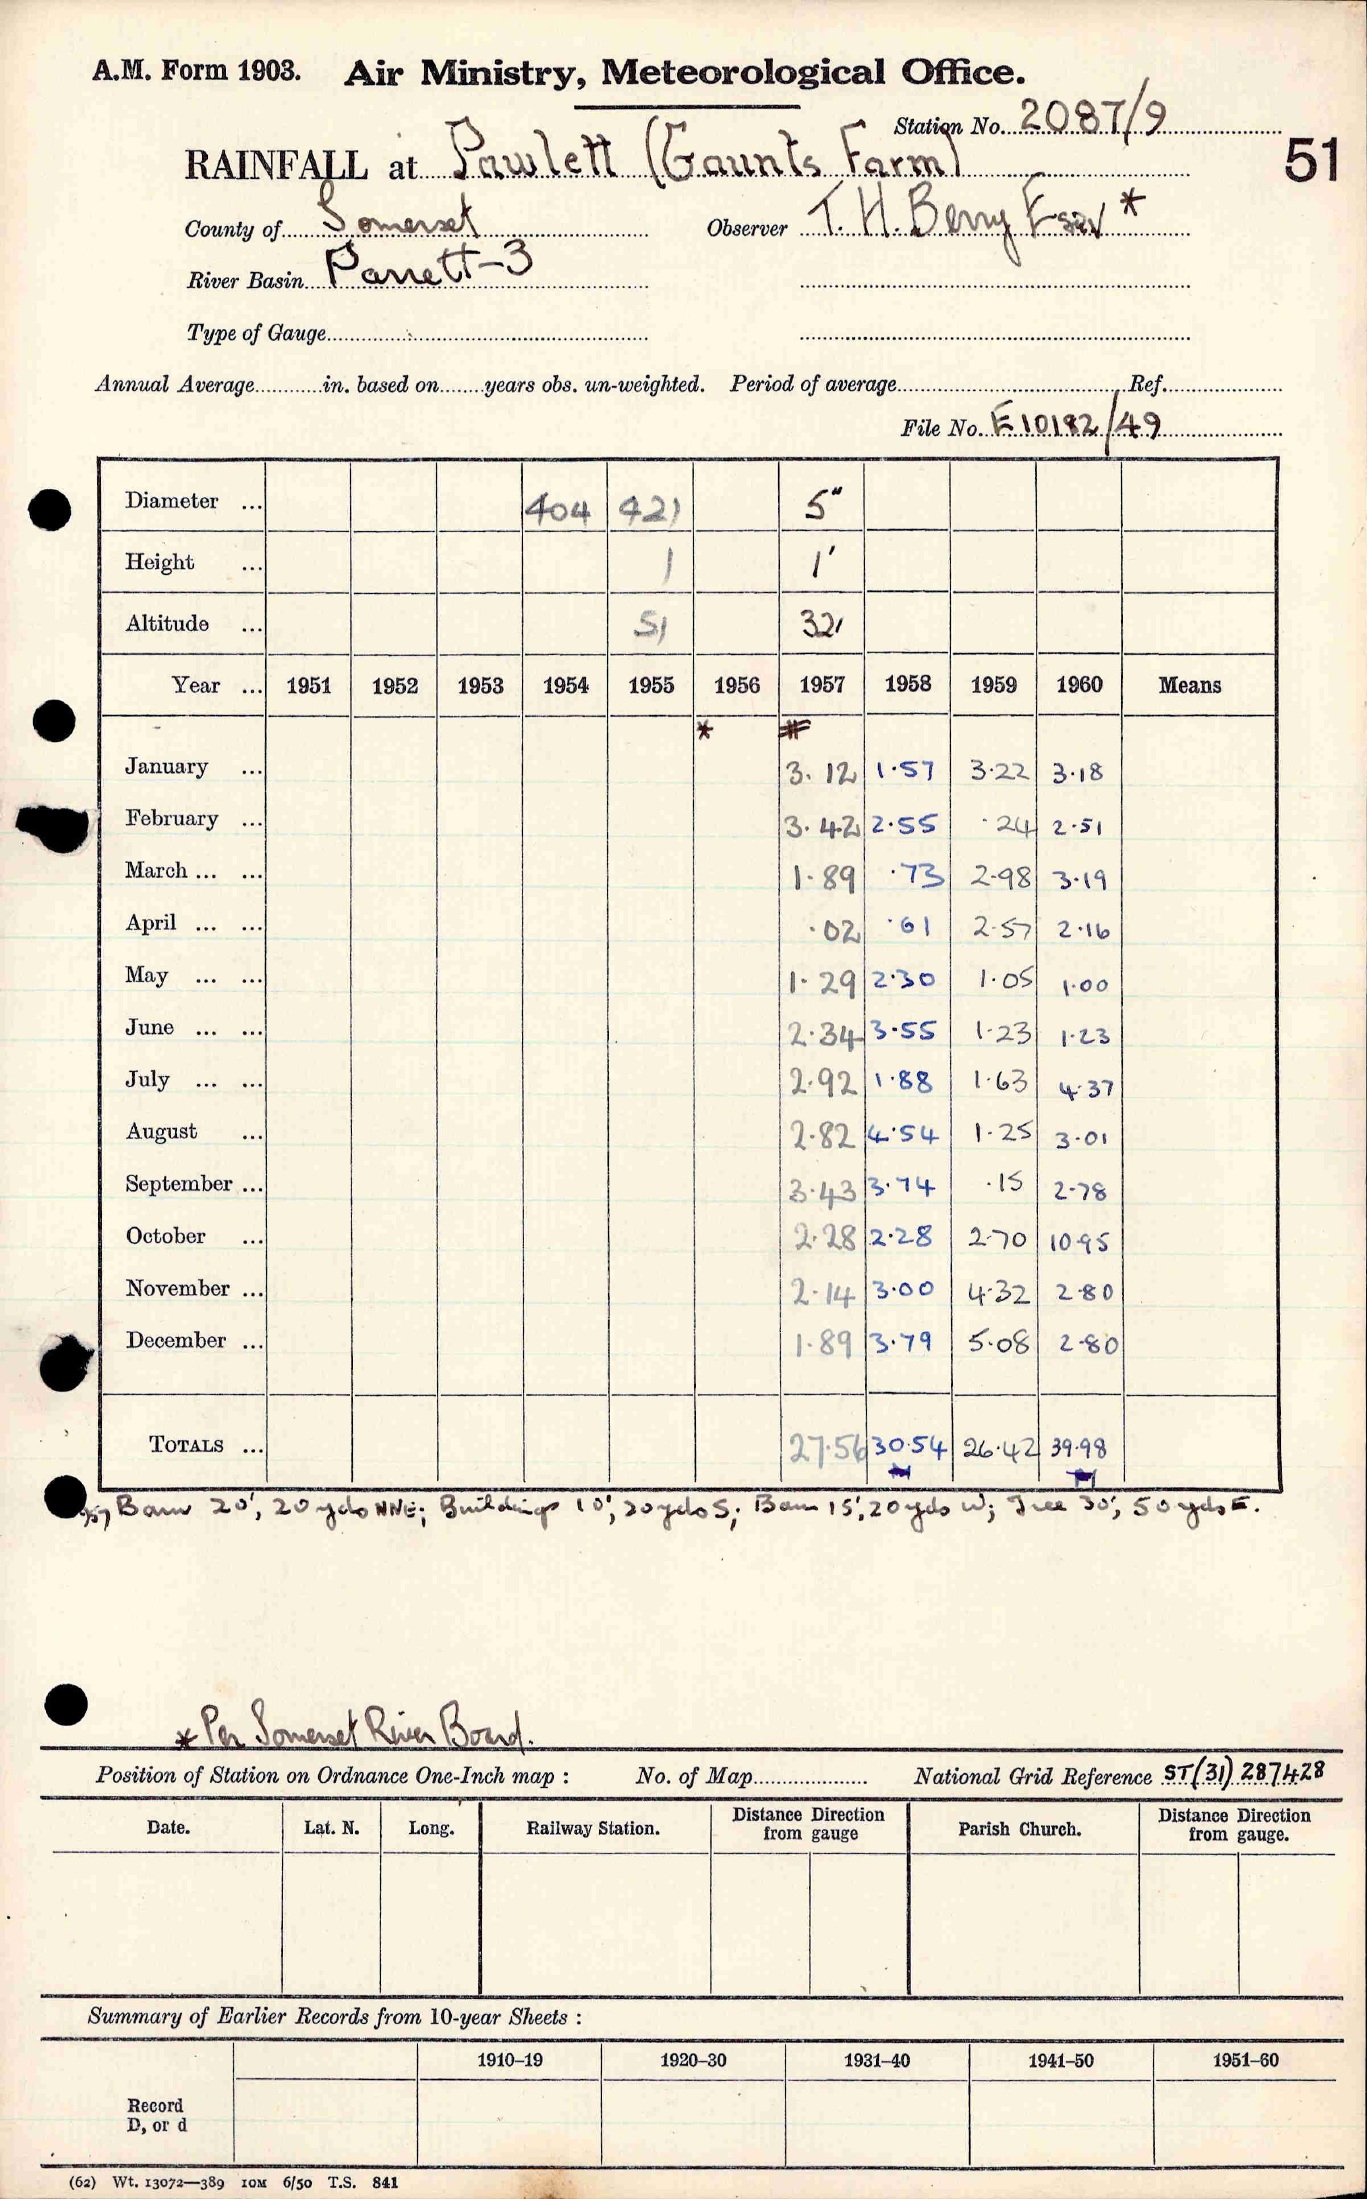 A.M. Form 1903. Air Ministry, Meteorological Office.
Station No. 2087/9
RAINFALL at Pawlett (Gaunts Farm)
51
County of Somerset Observer T. H. Berry Esqr *
River Basin Parrett-3
Type of Gauge
Annual Average in. based on years obs. un-weighted. Period of average Ref.
File No. E10182/49
Diameter ... 404 421 5"
Height ... 1 1'
Altitude ... 51 32'
Year ... 1951 1952 1953 1954 1955 1956 1957 1958 1959 1960 Means
* #
January ... 3.12 1.57 3.22 3.18
February ... 3.42 2.55 .24 2.51
March ... ... 1.89 .73 2.98 3.19
April ... ... .02 .61 2.57 2.16
May ... ... 1.29 2.30 1.05 1.00
June ... ... 2.34 3.55 1.23 1.23
July ... ... 2.92 1.88 1.63 4.37
August ... 2.82 4.54 1.25 3.01
September ... 3.43 3.74 .15 2.78
October ... 2.28 2.28 2.70 10.95
November ... 2.14 3.00 4.32 2.80
December ... 1.89 3.79 5.08 2.80
TOTALS ... 27.56 30.54 26.42 39.98
Barn 20', 20 yds NNE; Buildings 10', 20 yds S; Barn 15', 20 yds W; Tree 30', 50 yds E.
* Per Somerset River Board.
Position of Station on Ordnance One-Inch map : No. of Map National Grid Reference ST(31) 287428
Date. Lat. N. Long. Railway Station. Distance Direction from gauge Parish Church. Distance Direction from gauge.
Summary of Earlier Records from 10-year Sheets :
1910-19 1920-30 1931-40 1941-50 1951-60
Record
D, or d
(62) Wt. 13072—389 10M 6/50 T.S. 841